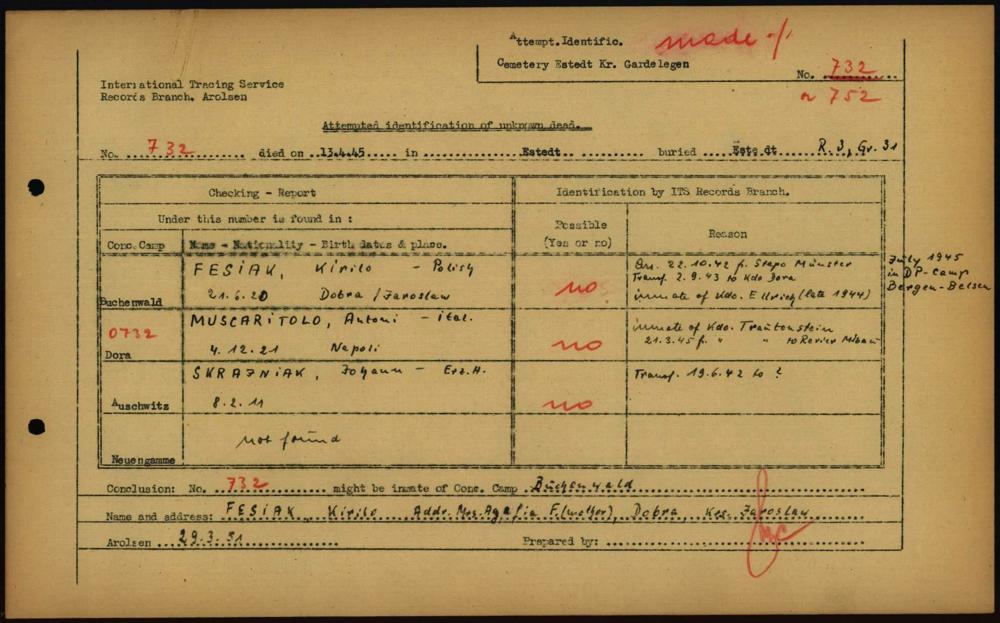 Attempt. Identific. made %
Cemetery Estedt Kr. Gardelegen
No. 732
a 752
International Tracing Service
Records Branch. Arolsen
Attempted identification of unknown dead.
No. 732 died on 13.4.45 in Estedt buried Estedt R. 3, Gr. 31
Checking - Report
Identification by ITS Records Branch.
Under this number is found in :
Possible
(Yes or no)
Reason
Conc. Camp Name - Nationality - Birth dates & place.
FESIAK, Kirilo - Polish
21.6.20 Dobra / Jaroslaw
Buchenwald
no
22.10.42 f. Stapo Münster
Transf. 2.9.43 to Kdo Dora
inmate of Kdo. Ellrich (late 1944)
July 1945
in DP-camp
Bergen-Belsen
0732
Dora
MUSCARITOLO, Antoni - ital.
4.12.21 Napoli
no
inmate of Kdo. Trautenstein
21.3.45 f. " " to Revier
Auschwitz
SKRAJNIAK, Johann - Erz.H.
8.2.11
no
Transf. 19.6.42 to ?
Neuengamme
not found
Conclusion: No. 732 might be inmate of Conc. Camp Buchenwald
Name and address: FESIAK, Kirilo Addr. Mrs. Agafia F. (mother), Dobra, Krs. Jaroslaw
Arolsen 29.3.51 Prepared by: